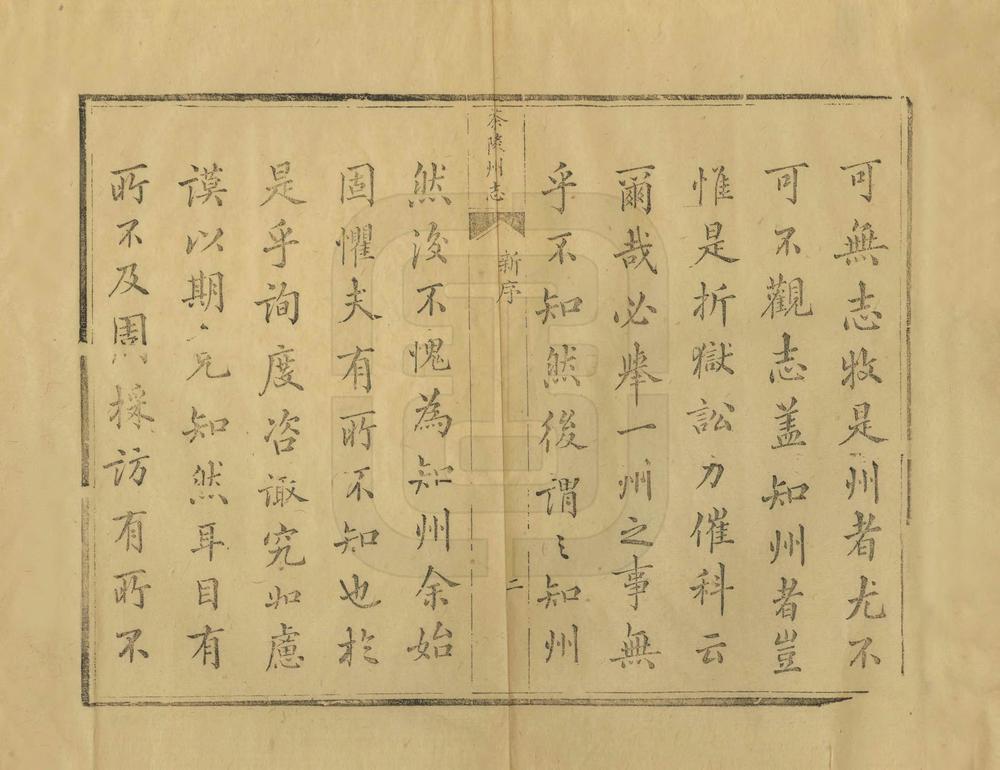 可無志牧是州者尤不
可不觀志蓋知州者豈
惟是折獄訟力催科云
爾哉必舉一州之事無
乎不知然後謂之知州
茶陵州志
新序
二
然後不愧為知州余始
固懼夫有所不知也於
是乎詢度咨諏究慮
謨以期知然耳目有
所不及周採訪有所不